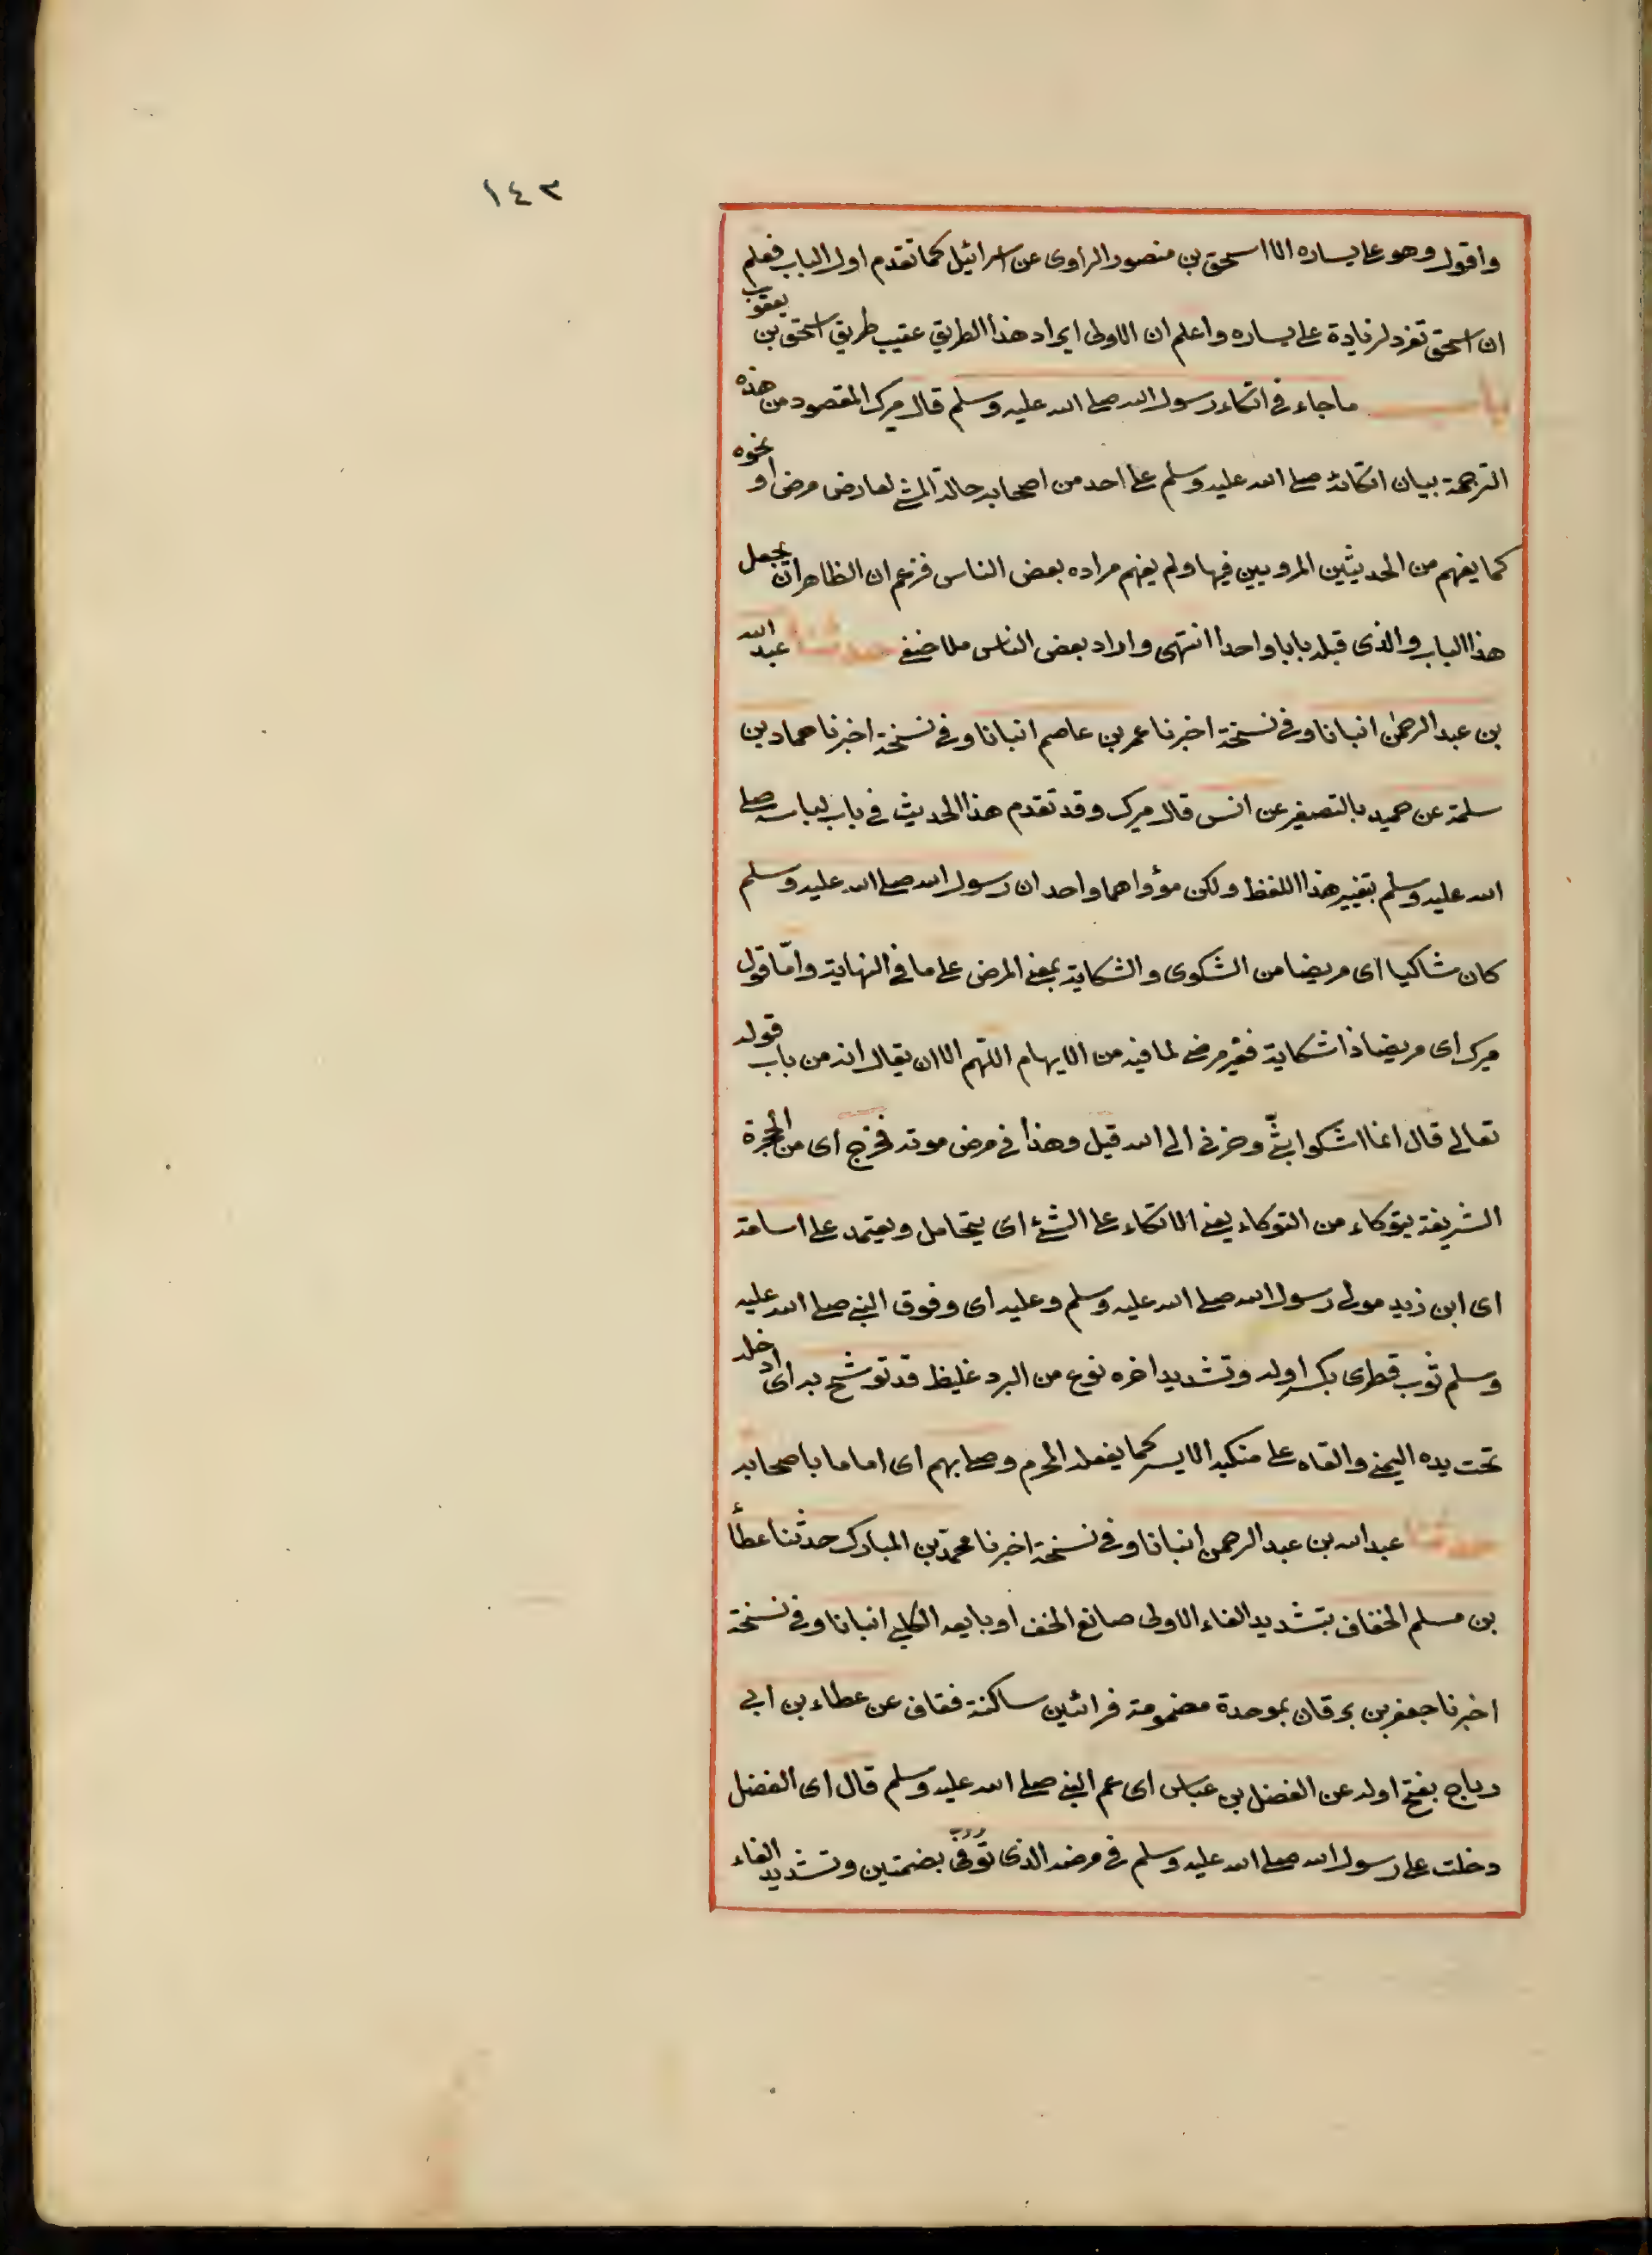 ١٤٣
واقول وهو على يساره الا اسحق بن منصور الراوى عن اسرائيل كما تقدم اول الباب فعلم
ان اسحق تفرد لزيادة على يساره واعلم ان الاولى ايراد هذا الطريق عقيب طريق اسحق بن يعقوب
باب ما جاء فى اتكاء رسول الله صلى الله عليه وسلم قال ميرك المقصود من هذه
الترجمة بيان اتكائه صلى الله عليه وسلم على احد من اصحابه حالة المشى لعارض مرض او نحوه
كما يفهم من الحديثين المرويين فيها ولم يفهم مراده بعض الناس فزعم ان الظاهر ان يجعل
هذا الباب والذى قبله بابا واحدا انتهى واراد بعض الناس ملا حنفى حدثنا عبد الله
بن عبد الرحمن انبانا وفى نسخة اخبرنا عمر بن عاصم انبانا وفى نسخة اخبرنا حماد بن
سلمة عن حميد بالتصغير عن انس قال ميرك وقد تقدم هذا الحديث فى باب لباسه صلى
الله عليه وسلم بتغيير هذا اللفظ ولكن مؤداهما واحد ان رسول الله صلى الله عليه وسلم
كان شاكيا اى مريضا من الشكوى والشكاية بمعنى المرض على ما فى النهاية وامّا قول
ميرك اى مريضا ذا شكاية فغير مرضى لما فيه من الايهام اللهم الا ان يقال انه من باب قوله
تعالى قال انما اشكوا بثّى وحزنى الى الله قيل وهذا فى مرض موته فخرج اى من الحجرة
الشريفة يتوكاء من التوكاء يعنى الاتكاء على الشئ اى يتحامل ويعتمد على اسامة
اى ابن زيد مولى رسول الله صلى الله عليه وسلم وعليه اى وفوق النبى صلى الله عليه
وسلم ثوب قطرى بكسر اوله وتشديد اخره نوع من البرد غليظ قد توشح به اى ادخله
تحت يده اليمنى والقاه على منكبه الايسر كما يفعله المحرم وصلى بهم اى اماما باصحابه
حدثنا عبد الله بن عبد الرحمن انبانا وفى نسخة اخبرنا محمد بن المبارك حدثنا عطأ
بن مسلم الخفاف بتشديد الفاء الاولى صانع الخف او بايعه الكلبى انبانا وفى نسخة
اخبرنا جعفر بن برقان بموحدة مضمومة فرائين ساكنة فقاف عن عطاء بن ابى
رباح بفتح اوله عن الفضل بن عباس اى عم النبى صلى الله عليه وسلم قال اى الفضل
دخلت على رسول الله صلى الله عليه وسلم فى مرضه الذى توفى بضمتين وتشديد الفاء